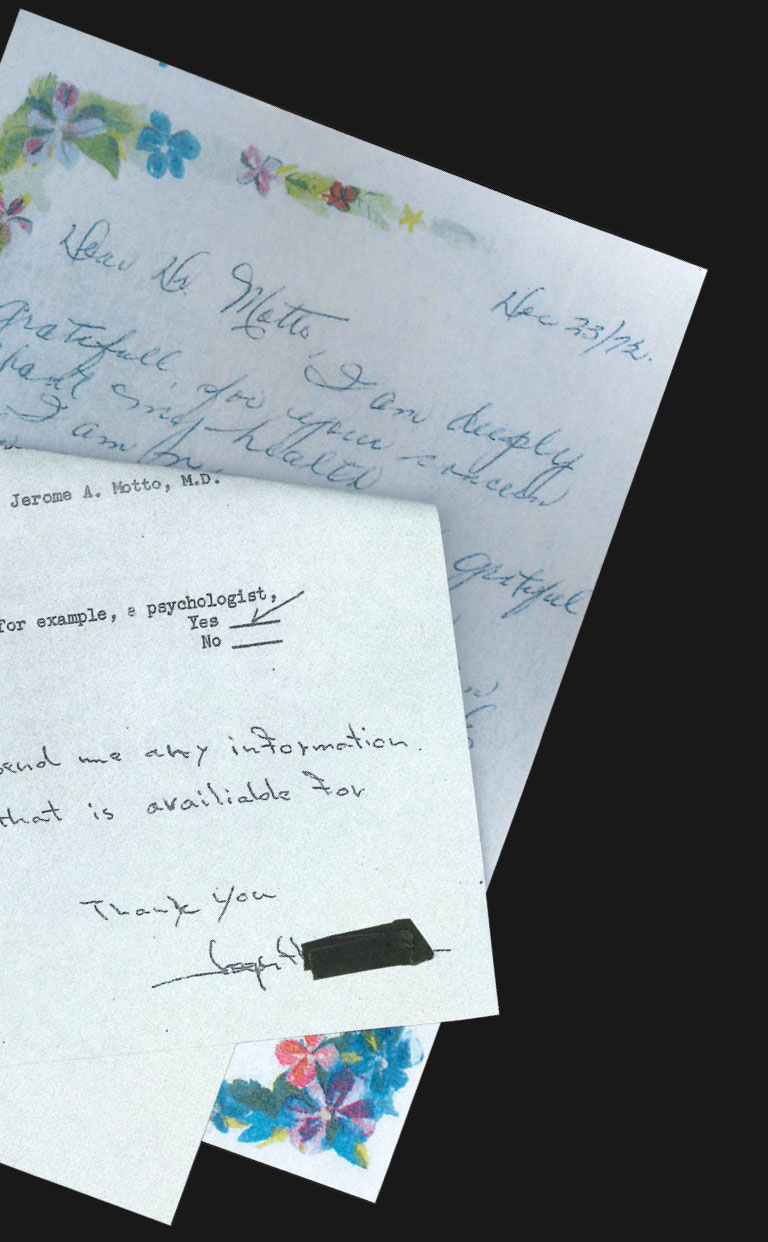 Dec 23/72.
Dear Dr. Motto,
I am deeply
gratefull, for your concern
part and health
I am
grateful
Jerome A. Motto, M.D.
for example, a psychologist,
Yes
No
send me any information.
that is availiable for
Thank you